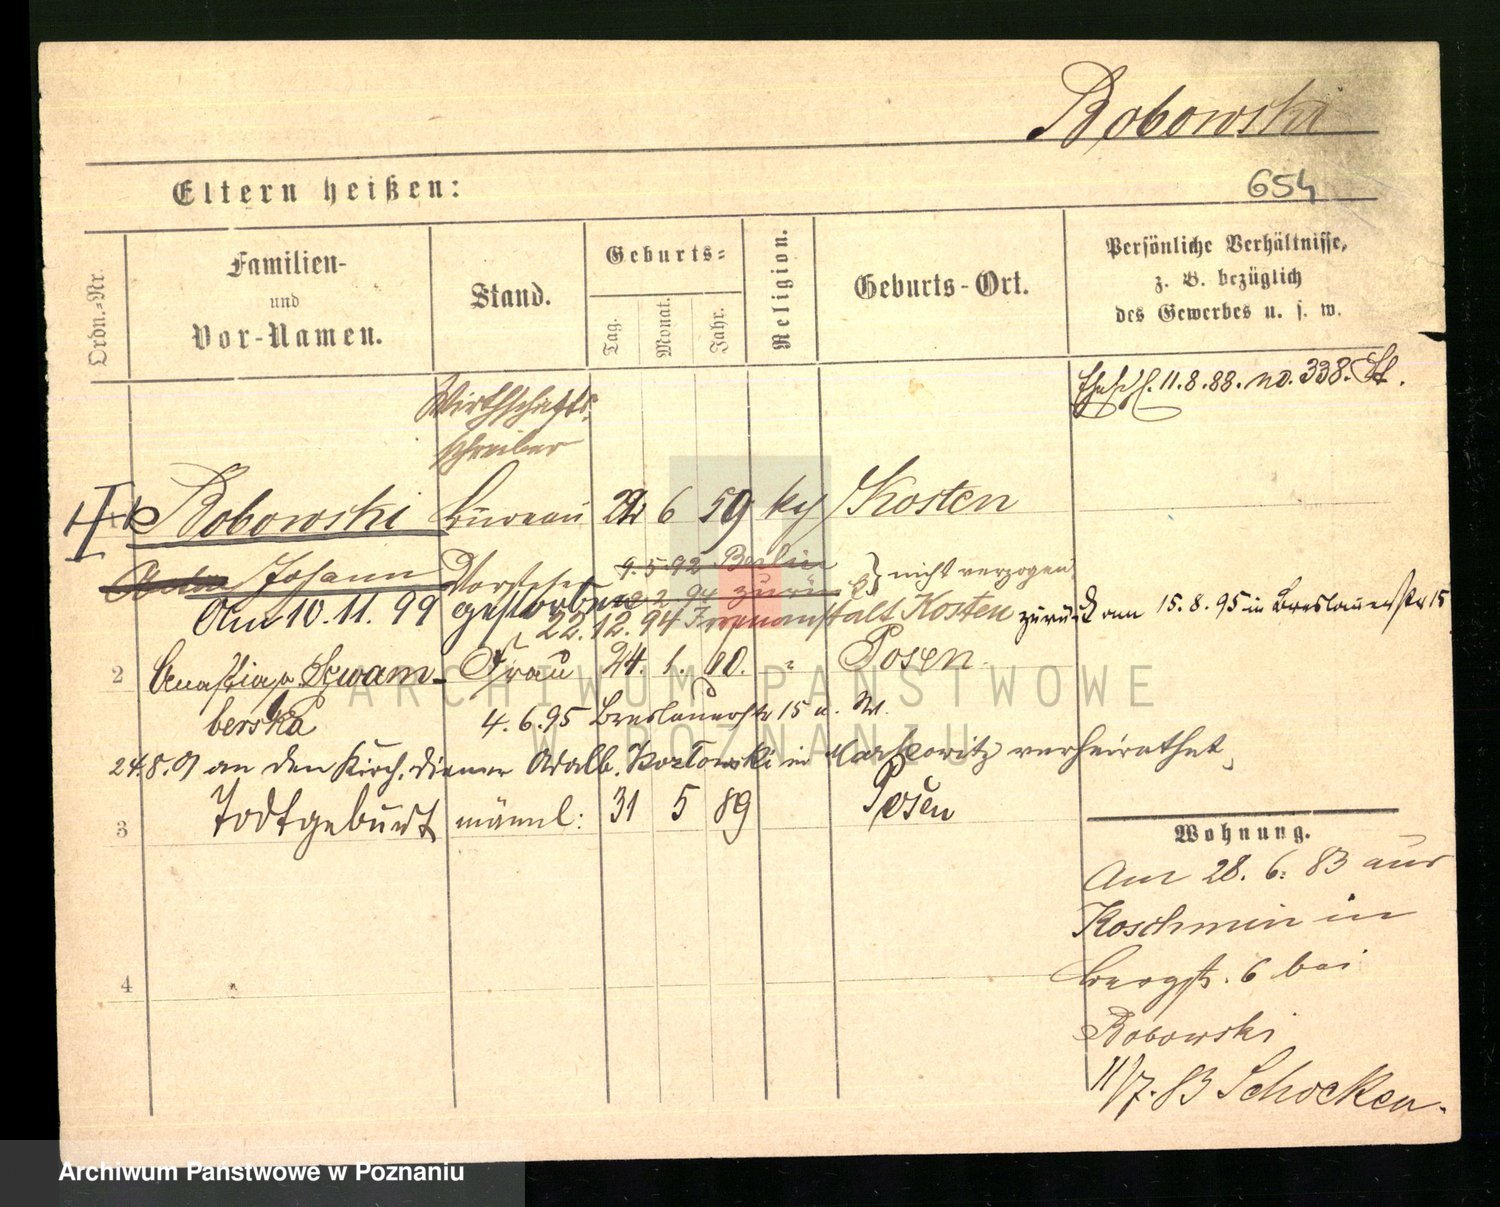 Bobowski
654
Eltern heißen:
Ordn.=Nr.
Familien-
und
Vor-Namen.
Stand.
Geburts=
Tag.
Monat.
Jahr.
Religion.
Geburts-Ort.
Persönliche Verhältnisse,
z. B. bezüglich
des Gewerbes u. s. w.
11.8.88. no. 338.
Wirthschafts
schreiber
Bobowski Bureau 6 59 Kosten
Johann Vorsteher 9.5.92 Berlin
nicht verzogen
Am 10.11.99 gestorben
22.12.94 Irrenanstalt Kosten zurück am 15.8.95 in Breslauerstr 15
2 Anastasia Kwam- Frau 24. 1. 60. " Posen
berska
4.6.95 Breslauerstr 15 u. W.
24.8.01 an den Kirch.diener Adalb. Kozlowski in verheirathet
3 Todtgeburt männl: 31 5 89 Posen
4
Wohnung.
Am 28. 6. 83 aus
Koschmin in
Bergstr. 6 bei
Bobowski
11/7.83 Schocken.
ARCHIWUM PAŃSTWOWE
W POZNANIU
Archiwum Państwowe w Poznaniu